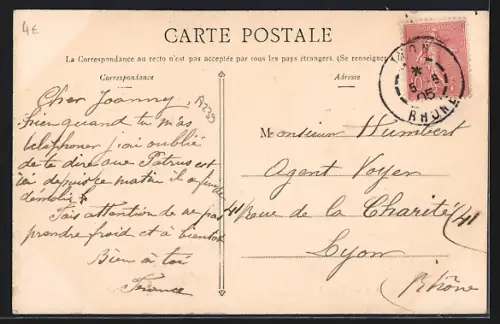 4€
CARTE POSTALE
La Correspondance au recto n'est pas acceptée par tous les pays étrangers. (Se renseigner
Correspondance
Adresse
LYON
5 05
RHONE
A239
Cher Joanny,
hier quand tu m'as
téléphoner j'ai oublié
de te dire que Patrus est
ici depuis ce matin il a
démoli
Fais attention de ne pas
prendre froid et à bientôt
Bien à toi
France
Monsieur Humbert
Agent Voyer
41 Rue de la Charité 41
Lyon
Rhône